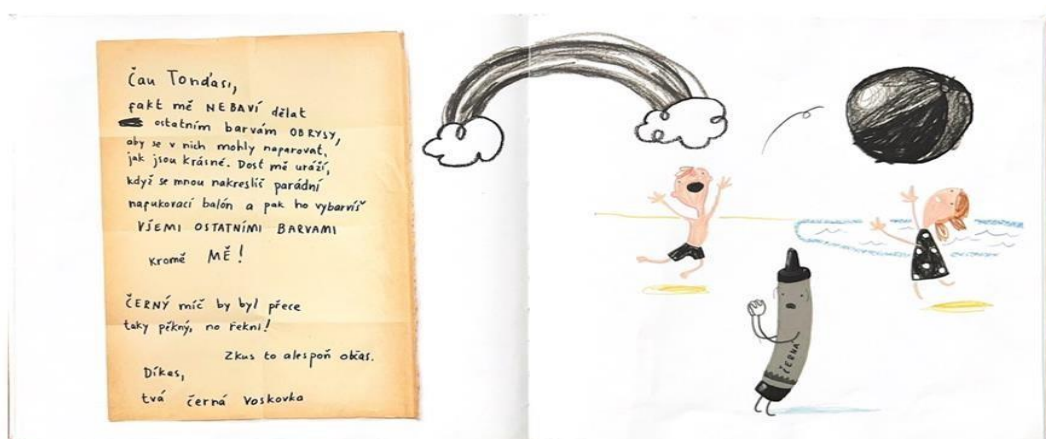 Čau Tondasi,
fakt mě NEBAVÍ dělat
ostatním barvám OBRYSY,
aby se v nich mohly naparovat,
jak jsou krásné. Dost mě uráží,
když se mnou nakreslíš parádní
nafukovací balón a pak ho vybarvíš
VŠEMI OSTATNÍMI BARVAMI
kromě MĚ!
ČERNÝ míč by byl přece
taky pěkný, no řekni!
Zkus to alespoň občas.
Díkas,
tvá černá voskovka
ČERNÁ